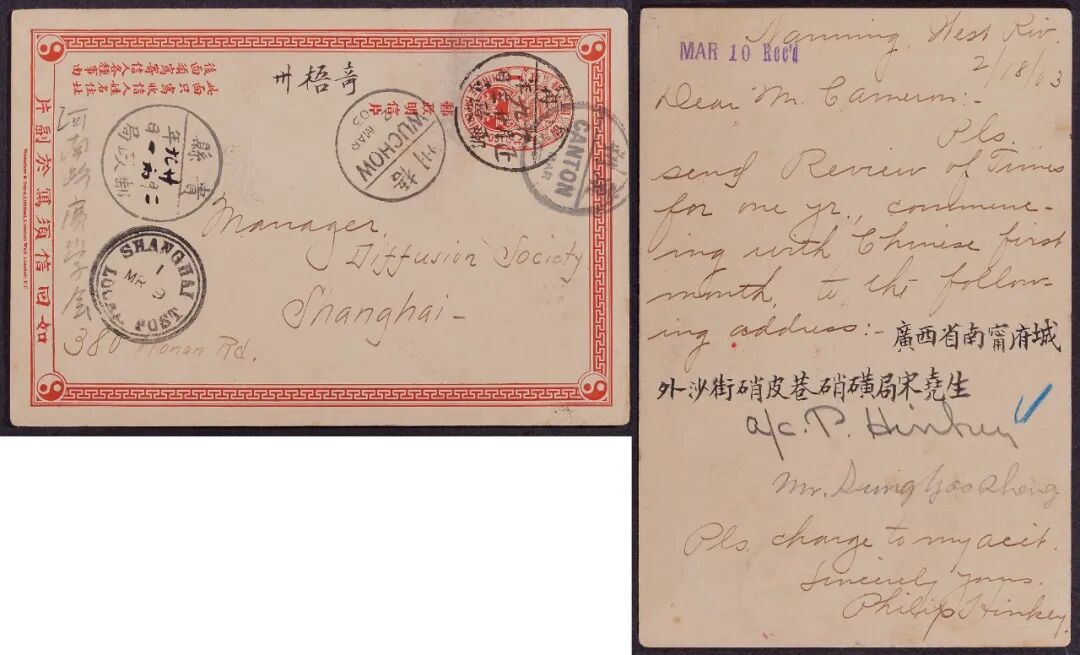 此面只寫收信人姓名住址
後面須寫寄信人各種事由
如回信須寫於副片
寄梧州
貴縣
郵政局
梧州
WUCHOW
MAR
03
CANTON
MAR
SHANGHAI
LOCAL POST
1
MR 9
河南路廣學會
Manager,
Diffusion Society
Shanghai-
380 Honan Rd.
MAR 10 Rec'd
Nanning, West Riv.
2/18/03
Dear Mr. Cameron:-
Pls
send Review of Times
for one yr., commenc-
ing with Chinese first
month, to the follow-
ing address:-
廣西省南甯府城
外沙街硝皮巷硝磺局宋堯生
a/c. P. Hinkey
Mr. Sung Yao Sheng
Pls. charge to my acct.
Sincerely yours,
Philip Hinkey.